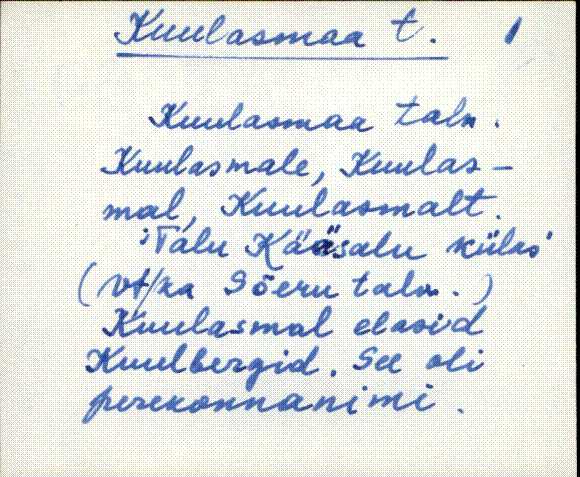 Kuulasmaa t. 1
Kuulasmaa talu.
Kuulasmale, Kuulas-
mal, Kuulasmalt.
'Talu Kääsalu külas'
(vt/ka Sõeru talu.)
Kuulasmal elasid
Kuulbergid. See oli
perekonnanimi.